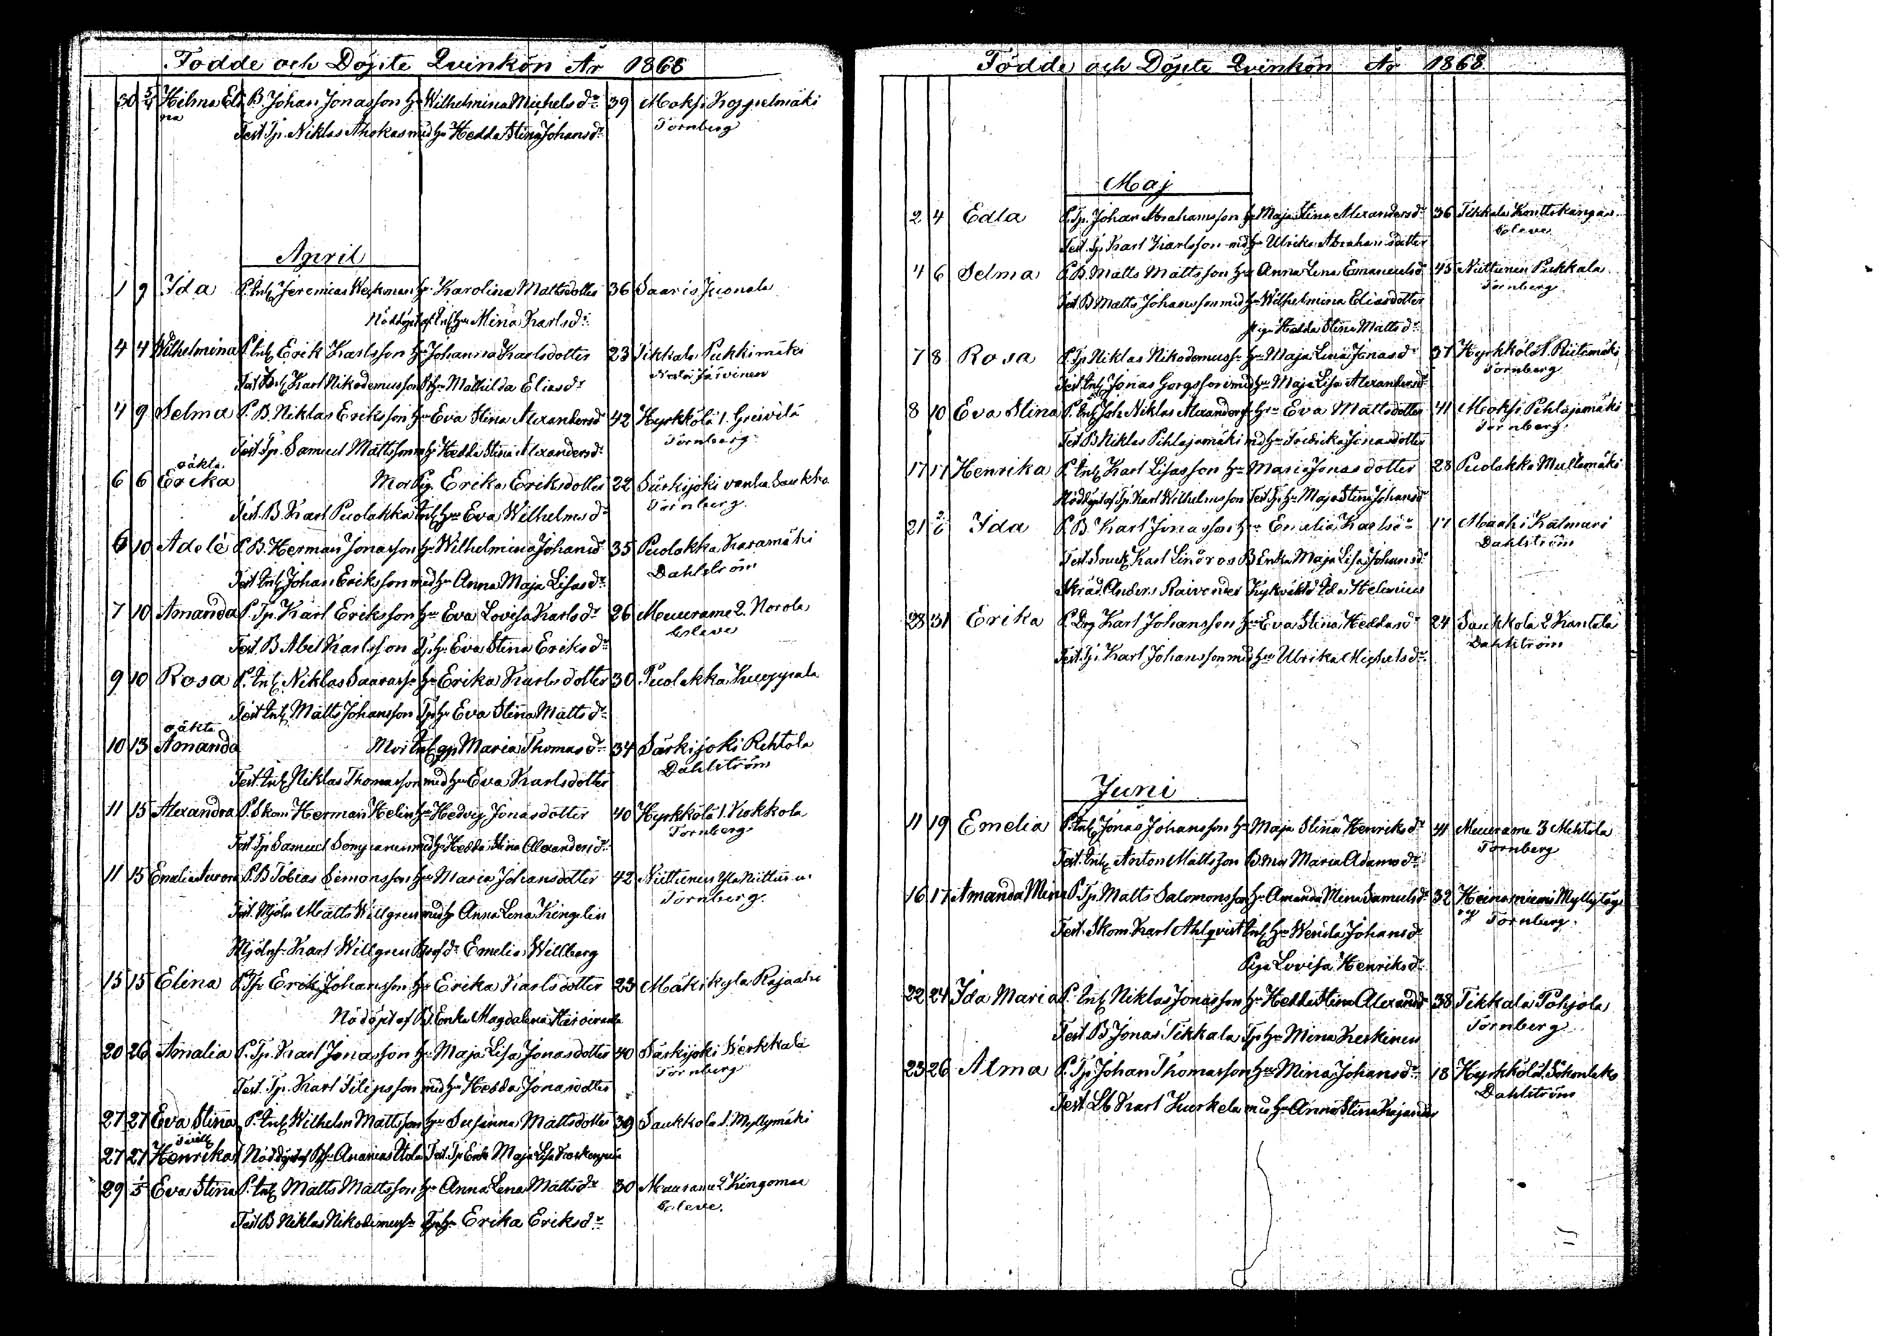 Födde och Döpte Qvinkön År 1868
30 5/4 Hilma Eli B. Johan Jonasson hu Wilhelmina Michelsdr 39 Moksi Koppelmäki
na Test Tp. Niklas Ahokas med hu Hedda Stina Johansdr Törnberg
April
1 9 Ida P. Inh Jeremias Weckman hu Karolina Mattsdotter 36 Saaris Juonala
Nöddöpt af Inh hu Mina Karlsdr
4 4 Wilhelmina P Inh Erik Karlsson hu Johanna Karlsdotter 23 Tikkala Pukkimäki
Test Inh Karl Nikodemusson hu Mathilda Eliasdr Järvinen
4 9 Selma P. B. Niklas Eriksson hu Eva Stina Alexandersd 42 Kyrkkölä 1. Greivilä
Test Tp. Samuel Mattsson hu Hedda Stina Alexandersdr Törnberg
oäkta
6 6 Erika Mor Pig. Erika Eriksdotter 22 Särkijoki vanha Saukko
Test. B Karl Puolakka Inh hu Eva Wilhelmsdr Törnberg.
6 10 Adolè P. B. Herman Jonasson hu Wilhelmina Johansd 35 Puolakka Karamäki
Test Inh Johan Eriksson med hu Anna Maja Lisasdr Dahlström
7 10 Amanda P. Tp. Karl Eriksson hu Eva Lovisa Karlsdr 26 Meurame 2. Norola
Test. B Abel Karlsson Tp hu Eva Stina Eriksdr Coleve
9 10 Rosa P. Inh. Niklas Saarasson hu Erika Karlsdotter 30 Puolakka Kuoppala
Test Inh Matts Johansson Tp hu Eva Stina Mattsdr
oäkta
10 13 Amanda Mor Inh Maria Thomasdr 34 Särkijoki Rehtola
Test. Inh Niklas Thomasson med hu Eva Karlsdotter Dahlström
11 15 Alexandra P. Skom Herman Helin hu Hedvig Jonasdotter 40 Kyrkkölä 1. Kokkola
Test Tp Samuel Sompanen med hu Hedda Stina Alexandersdr Törnberg
11 15 Emelia Aurora P. B Tobias Simonsson hu Maria Johansdotter 42 Niittunen Yla Niittun n.
Test. Mjöln Matts Willgren med hu Anna Lena Kingelin Törnberg.
Mjölnf. Karl Willgren Emelia Willberg
15 15 Elina P. Tp Erik Johansson hu Erika Karlsdotter 23 Mäkikylä Rajaaho
Nödöpt af Enka Magdalena
20 26 Amalia P. Tp. Karl Jonasson hu Maja Lisa Jonasdotter 40 Särkijoki Werkkala
Test. Tp. Karl Filipsson med hu Hedda Jonasdotter Törnberg
27 27 Eva Stina P. Inh Wilhelm Mattsson hu Susanna Mattsdotter 39 Saukkola 1. Myllymäki
27 27 Henrika Nöddöpt af Ananias Test. Tp Enka Maja Lisa
29 1/5 Eva Stina P. Inh Matts Mattsson hu Anna Lena Mattsdr 30 Meurame 2 Kingomaa
Test B Niklas Nikodemusson Tp hu Erika Eriksdr Coleve.
Födde och Döpte Qvinkön År 1868
Maj
2 4 Edla P. Tp. Johan Abrahamsson hu Maja Stina Alexandersdr 36 Tikkala Konttikangas
Test Tp Karl Karlsson med hu Ulrika Abrahamsdotter Coleve
4 6 Selma P. B. Matts Mattsson hu Anna Lena Emanuelsd 45 Niittunen Pukkala
Test B Matts Johansson med hu Wilhelmina Eliasdotter Törnberg
piga Hedda Stina Mattsdr
7 8 Rosa P. Tp Niklas Nikodemusson hu Maja Lena Jonasdr 37 Kyrkkölä 1. Riitamäki
Test Inh Jonas Gorgsson med hu Maja Lisa Alexandersdr Törnberg
8 10 Eva Stina P. Inh Joh Niklas Alexanders hu Eva Mattsdotter 41 Moksi Pihlajamäki
Test B Niklas Pihlajamäki med hu Fredrika Jonasdotter Törnberg.
17 17 Henrika P. Inh Karl Lisasson hu Maria Jonasdotter 28 Puolakka Multamäki
Nöddöpt af Tp. Karl Wilhelmsson Test Tp hu Maja Stina Johansdr
21 2/6 Ida P. B Karl Jonasson hu Emalia Karlsdr 17 Maahi Kalmari
Test Karl Linöros B Enka Maja Lisa Johansdr Dahlström
Skräd. Anders Raivonder Kyrkväkta Ida Helenius
28 31 Erika P. Drg Karl Johansson hu Eva Stina Heddasdr 24 Saukkola 2 Kantala
Test. Tp. Karl Johansson med hu Ulrika Michelsdr Dahlström
Juni
11 19 Emelia P. Inh Jonas Johansson hu Maja Stina Henriksdr 41 Meurame 3 Mehtola
Test. Inh Anton Mattsson Maria Adamsdr Törnberg
16 17 Amanda Mina P. Tp. Matts Salomonsson hu Amanda Mina Samuelsdr 32 Heinosniemi Myllytög
Test. Skom. Karl Ahlqvist Inh hu Wenda Johansdr Törnberg.
Piga Lovisa Henriksdr
22 24 Ida Maria P. Inh Niklas Jonasson hu Hedda Stina Alexandr 38 Tikkala Pohjola
Test B Jonas Tikkala Tp hu Mina Keskinen Törnberg
23 26 Alma P. Tp Johan Thomasson hu Mina Johansdr 18 Kyrkkölä 1. Sokonloko
Test Lb Karl Kurkela med hu Anna Stina Kajander Dahlström